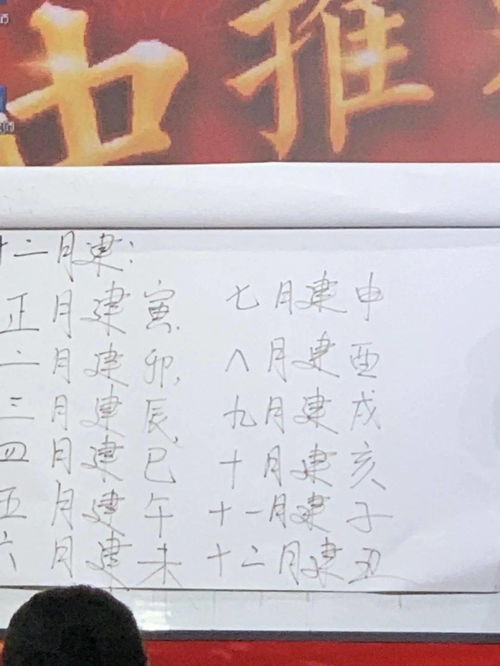 中推
十二月建:
正月建寅 七月建申
二月建卯 八月建酉
三月建辰 九月建戌
四月建巳 十月建亥
五月建午 十一月建子
六月建未 十二月建丑